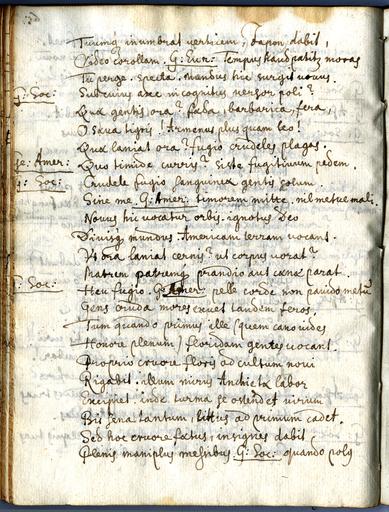 Tuumq inumbrat verticem, trapon dabit,
Video corollam. G: Eur: Tempus haud patitur moras
Tu perge. specta. mundus hic surgit novus.
G: Soc: Sub cuius axe incognitus versor poli?
Quæ gentis ora? fæda, barbarica, fera,
O sæva tigris! Armenus plus quam leo!
Quæ laniat ora? fugio crudeles plagas.
Ge: Amer: Quo timide curris? siste fugitivum pedem
G: Soc: Crudele fugio sanguineæ gentis solum.
Sine me. G: Amer: timorem mitte, nil metue mali.
Novus hic vocatur orbis, ignotus Deo
mundus. Americam terram vocant.
G: Soc: At ora laniat cernis? ut corpus vorat?
Matrem patremq prandio aut cænæ parat.
Heu fugio. G: Amer: pelle corde non pavido metum
Gens cruda mores exuet tandem feros.
Tum quando primus ille (quem cano vides
Honore plenum) floridam gentes vocant.
Proprio cruore floris ad cultum novi
Rigabit. illum mirus Anchietæ labor
Excipiet. inde turma se ostendet virium
Bis sena tantum, littus ad primum cadet.
Sed hoc cruore fætus, insignes dabit
Plenis maniplus messibus. G: Soc: quando poly